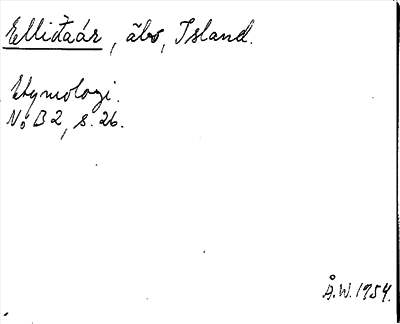 Elliđaár, äbo, Island.
Etymologi.
NoB 2, s. 26.
Å.W. 1954.